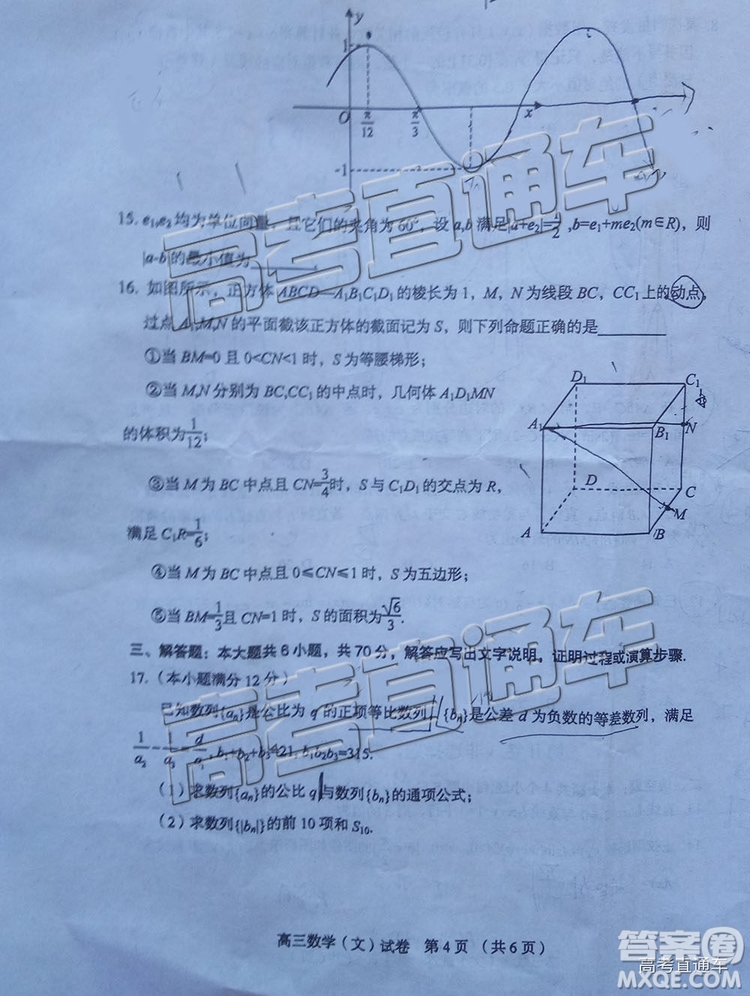 y
1
O
π/12
π/3
x
-1
15. e₁,e₂ 均为单位向量，且它们的夹角为 60°，设 a,b 满足|a+e₂|=1/2 ,b=e₁+me₂(m∈R)，则
|a-b|的最小值为
16. 如图所示，正方体 ABCD—A₁B₁C₁D₁ 的棱长为 1，M，N 为线段 BC，CC₁ 上的动点，
过点 A₁,M,N 的平面截该正方体的截面记为 S，则下列命题正确的是
①当 BM=0 且 0<CN<1 时，S 为等腰梯形；
②当 M,N 分别为 BC,CC₁ 的中点时，几何体 A₁D₁MN
的体积为1/12；
③当 M 为 BC 中点且 CN=3/4时，S 与 C₁D₁ 的交点为 R，
满足 C₁R=1/6；
④当 M 为 BC 中点且 0≤CN≤1 时，S 为五边形；
⑤当 BM=1/3且 CN=1 时，S 的面积为√6/3.
D₁
C₁
A₁
B₁
N
D
C
M
A
B
三、解答题：本大题共 6 小题，共 70 分，解答应写出文字说明，证明过程或演算步骤.
17.（本小题满分 12 分）
已知数列{aₙ}是公比为 q 的正项等比数列，{bₙ}是公差 d 为负数的等差数列，满足
1/a₂-1/a₃=d/a₁,b₁+b₂+b₃=21,b₁b₂b₃=315.
(1) 求数列{aₙ}的公比 q 与数列{bₙ}的通项公式；
(2) 求数列{|bₙ|}的前 10 项和 S₁₀.
高三数学（文）试卷 第 4 页 （共 6 页）
高考直通车
高考直通车
答案圈
高考直通车
MXQE.COM